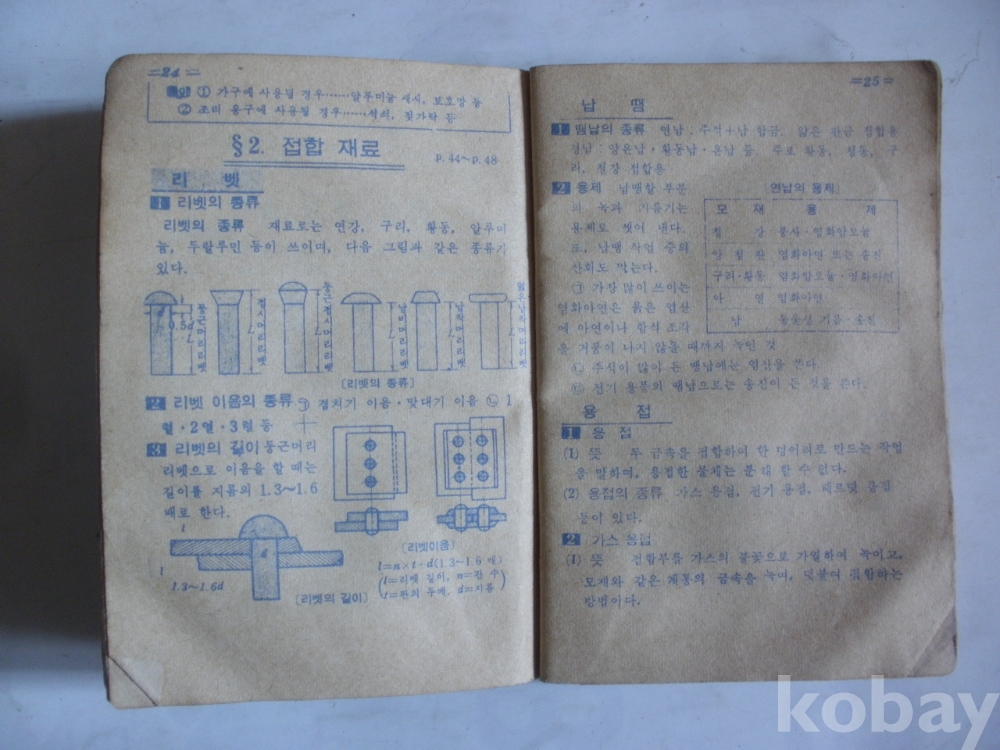 =24=
① 가구에 사용될 경우……알루미늄 새시, 보호망 등
② 조리 용구에 사용될 경우……석쇠, 젓가락 등
§2. 접합 재료
p.44~p.48
리 벳
1 리벳의 종류
리벳의 종류 재료로는 연강, 구리, 황동, 알루미
늄, 두랄루민 등이 쓰이며, 다음 그림과 같은 종류가
있다.
0.5d
둥근머리리벳
접시머리리벳
납작머리리벳
[리벳의 종류]
2 리벳 이음의 종류 ㉠ 겹치기 이음·맞대기 이음 ㉡ 1
렬·2열·3렬 등
3 리벳의 길이 둥근머리
리벳으로 이음을 할 때는
길이를 지름의 1.3~1.6
배로 한다.
1.3~1.6d
[리벳의 길이]
[리벳이음]
l=n×t+d(1.3~1.6 배)
(l=리벳 길이, n=판 수
t=판의 두께, d=지름)
=25=
납 땜
1 땜납의 종류 연납: 주석+납 합금. 얇은 판금 접합용
경납: 양은납·황동납·은납 등. 주로 황동, 청동, 구
리, 철강 접합용
2 용제 납땜할 부분
의 녹과 기름기는
용제로 씻어 낸다.
또, 납땜 작업 중의
산화도 막는다.
㉠ 가장 많이 쓰이는
염화아연은 묽은 염산
에 아연이나 함석 조각
을 거품이 나지 않을 때까지 녹인 것
㉡ 주석이 많이 든 땜납에는 염산을 쓴다.
㉢ 전기 용품의 땜납으로는 송진이 든 것을 쓴다.
[연납의 용제]
모 재 용 제
철 강 붕사·염화암모늄
양 철 판 염화아연 또는 송진
구리·황동 염화암모늄·염화아연
아 연 염화아연
납 동물성 기름·송진
용 접
1 용접
(1) 뜻 두 금속을 접합하여 한 덩어리로 만드는 작업
을 말하며, 용접한 물체는 분해 할 수 없다.
(2) 용접의 종류 가스 용접, 전기 용접, 테르밋 용접
등이 있다.
2 가스 용접
(1) 뜻 접합부를 가스의 불꽃으로 가열하여 녹이고,
모재와 같은 계통의 금속을 녹여, 덧붙여 접합하는
방법이다.
kobay